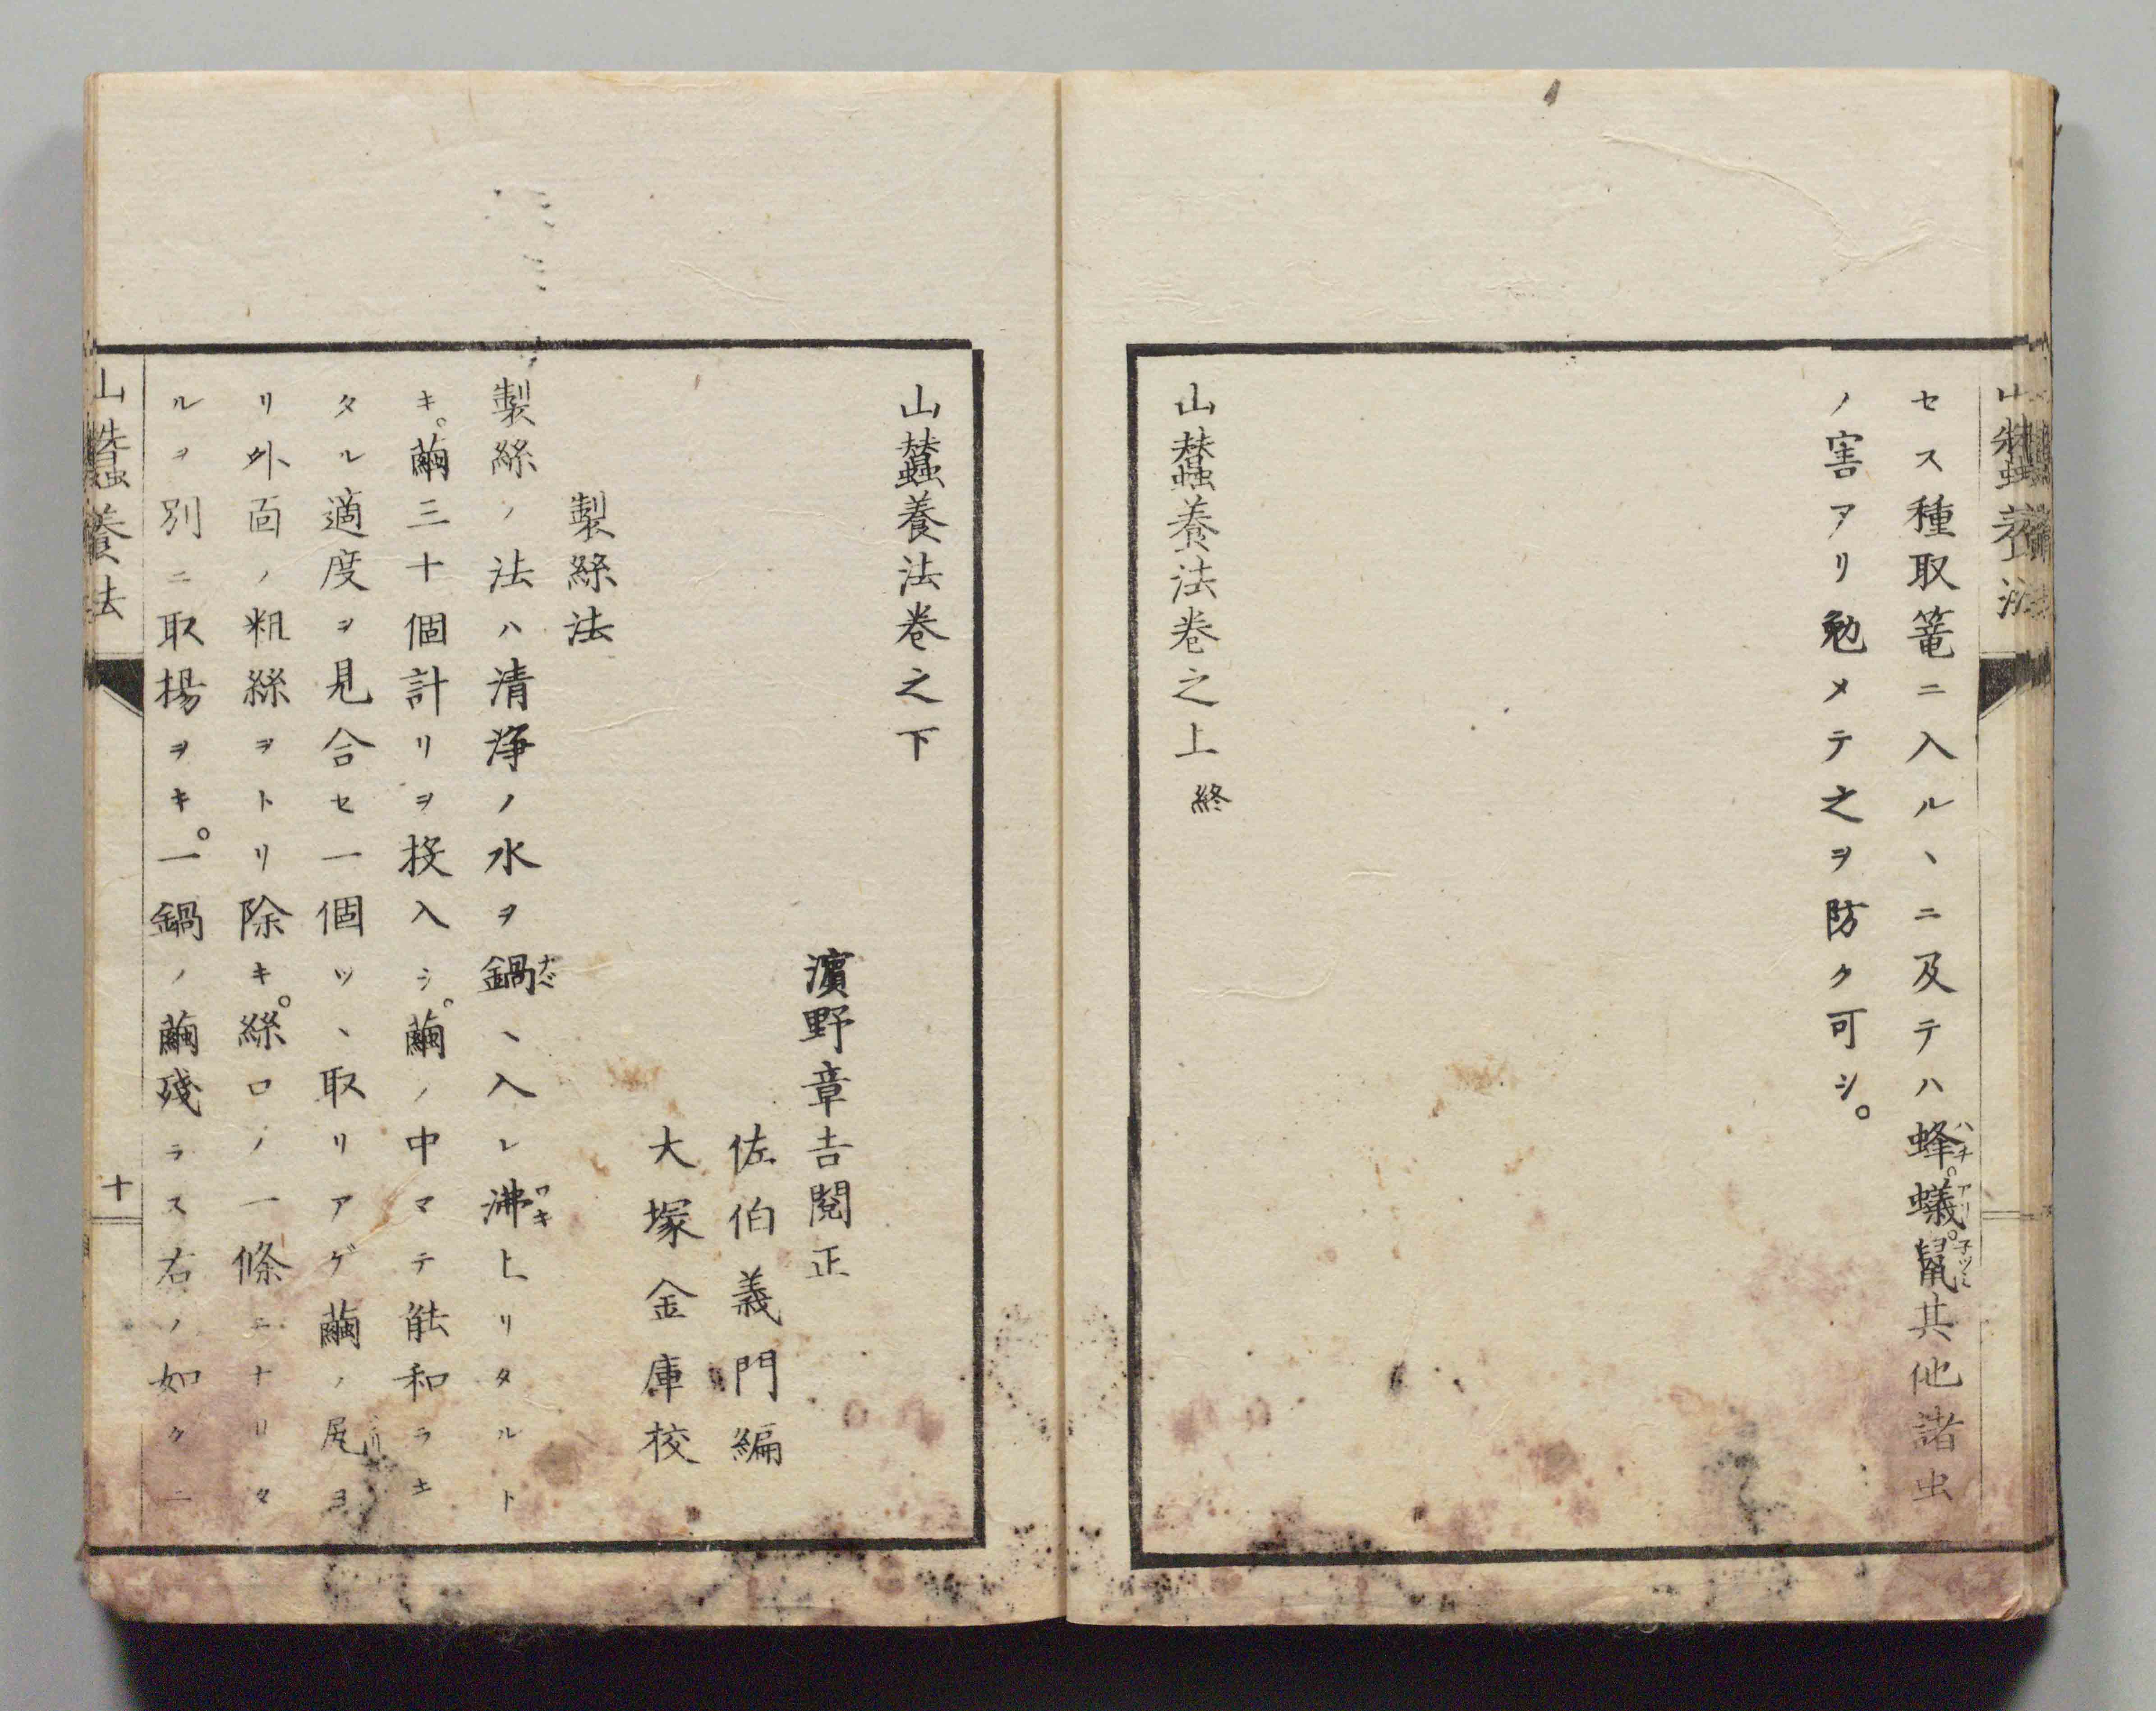 山蠶養法
セス種取篭ニ入ルヽニ及テハ蜂。蟻。鼠其他諸虫
ハチ アリ 子ツミ
ノ害アリ勉メテ之ヲ防ク可シ。
山蠶養法巻之上 終
山蠶養法巻之下
濵野章吉閲正
佐伯義門編
大塚金庫校
製絲法
製絲ノ法ハ清浄ノ水ヲ鍋ヽ入レ沸上リタルト
ナベ ワキ
キ。繭三十個計リヲ投入シ。繭ノ中マテ能和ラキ
タル適度ヲ見合セ一個ツヽ取リアゲ繭ノ尻ヨ
リ外面ノ粗絲ヲトリ除キ。絲口ノ一條ニナリタ
ルヲ別ニ取揚ヲキ。一鍋ノ繭残ラス右ノ如クニ
山蠶養法
十